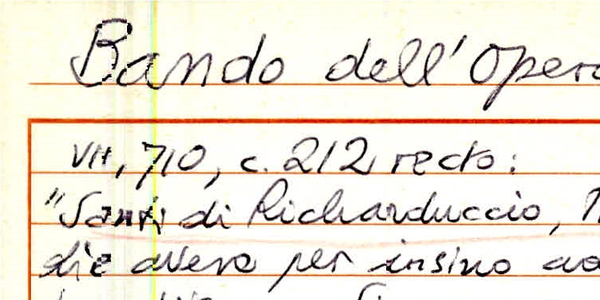 Bando dell'Opera
VII, 710, c. 212 recto:
"Santi di Richarduccio,
die avere per insino